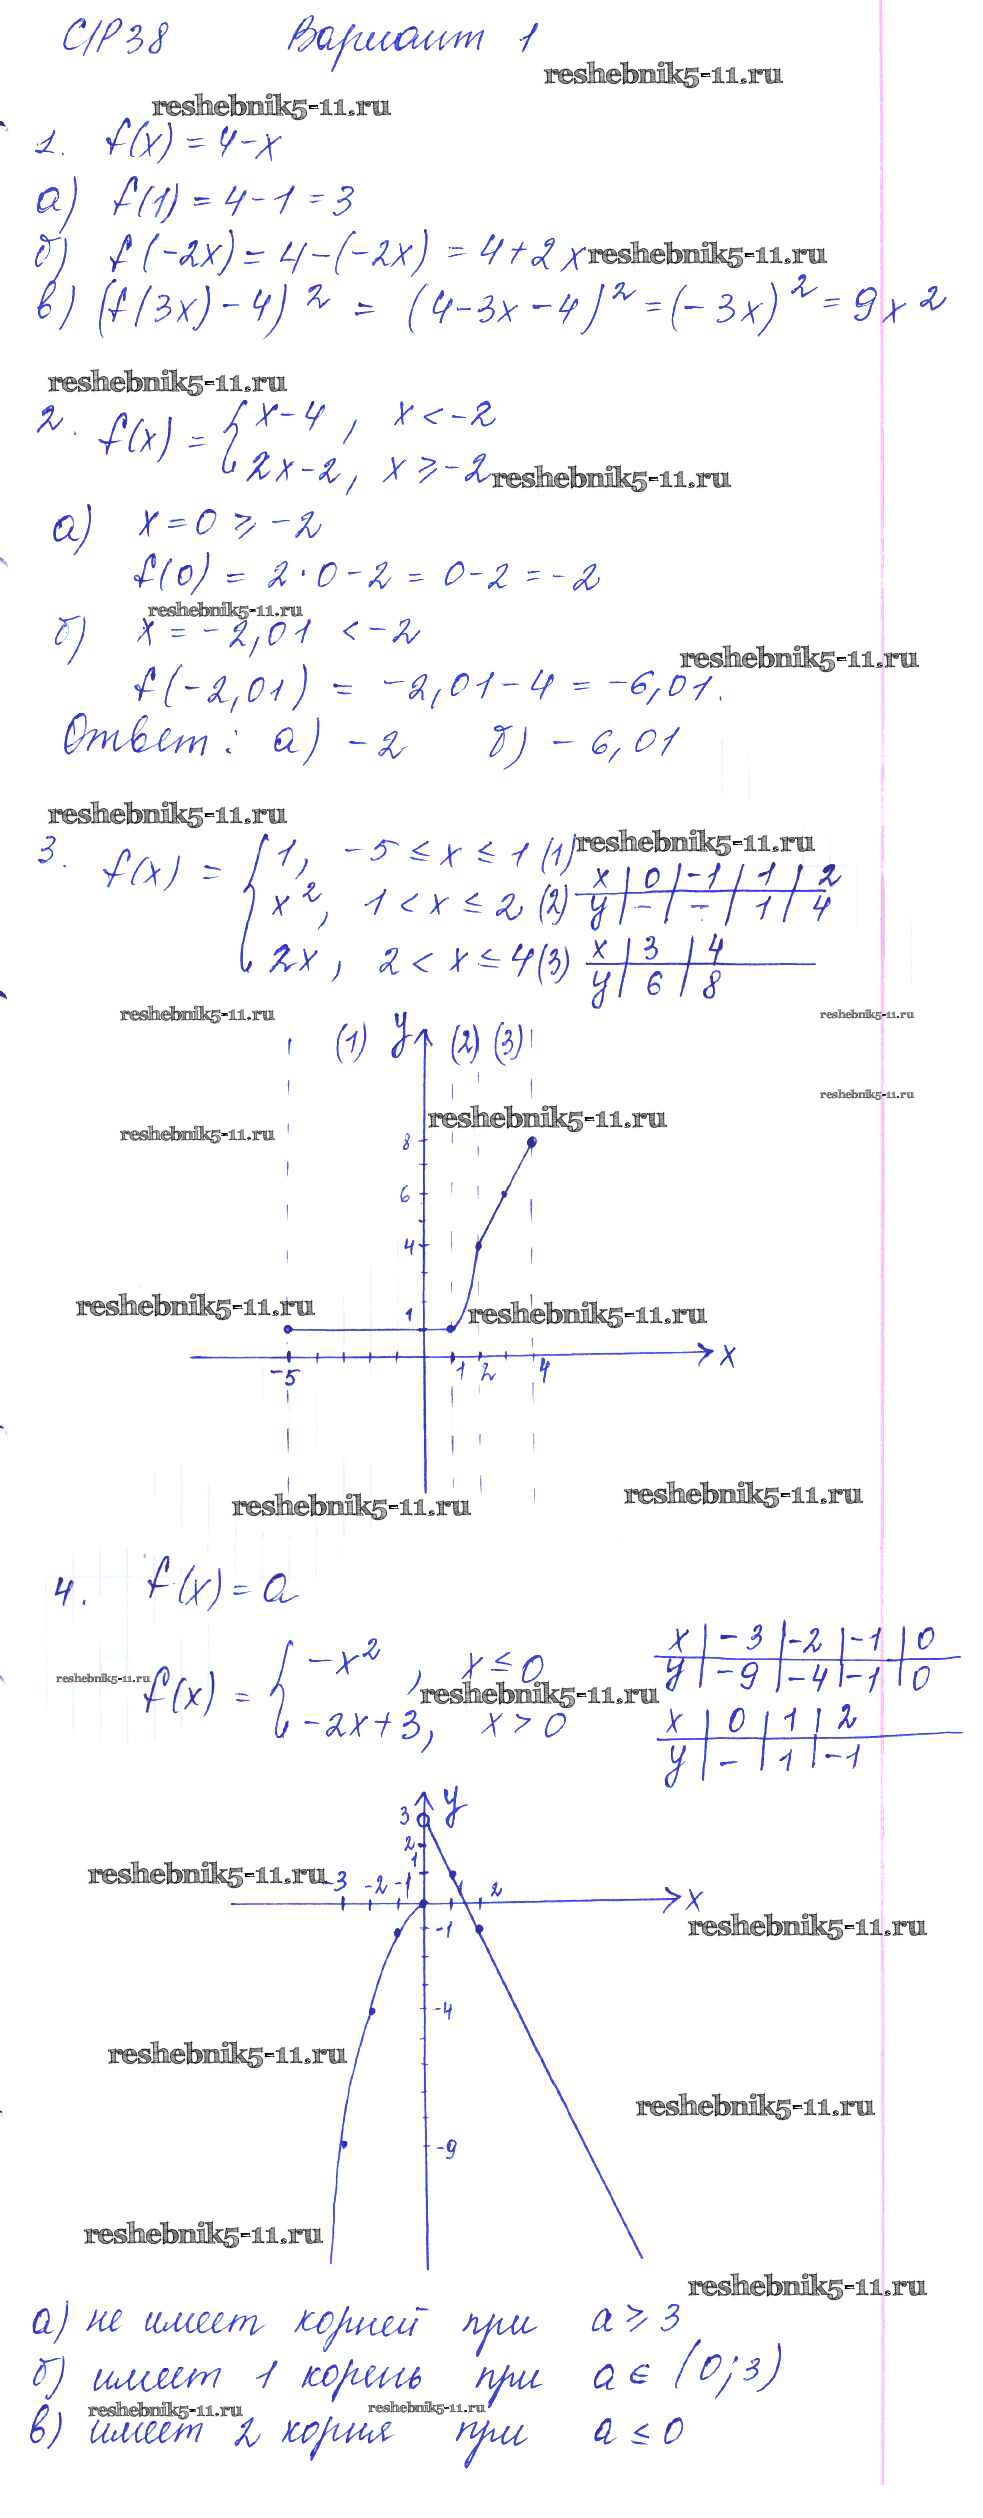 С/Р38 Вариант 1
reshebnik5-11.ru
reshebnik5-11.ru
1. f(x) = 4-x
а) f(1) = 4-1 = 3
б) f(-2x) = 4-(-2x) = 4+2x reshebnik5-11.ru
в) (f(3x)-4)² = (4-3x-4)² = (-3x)² = 9x²
reshebnik5-11.ru
2. f(x) = { x-4, x < -2
2x-2, x ≥ -2 reshebnik5-11.ru
а) x = 0 ≥ -2
f(0) = 2·0-2 = 0-2 = -2
reshebnik5-11.ru
б) x = -2,01 < -2
reshebnik5-11.ru
f(-2,01) = -2,01-4 = -6,01.
Ответ: а) -2 б) -6,01
reshebnik5-11.ru
reshebnik5-11.ru
3. f(x) = { 1, -5 ≤ x ≤ 1 (1)
x², 1 < x ≤ 2 (2) x | 0 | -1 | 1 | 2
y | - | - | 1 | 4
2x, 2 < x ≤ 4 (3) x | 3 | 4
y | 6 | 8
reshebnik5-11.ru reshebnik5-11.ru
(1) y (2) (3)
reshebnik5-11.ru
reshebnik5-11.ru
reshebnik5-11.ru
8
6
4
reshebnik5-11.ru 1 reshebnik5-11.ru
x
-5 1 2 4
reshebnik5-11.ru reshebnik5-11.ru
4. f(x) = a
f(x) = { -x², x ≤ 0
-2x+3, x > 0
reshebnik5-11.ru reshebnik5-11.ru
x | -3 | -2 | -1 | 0
y | -9 | -4 | -1 | 0
x | 0 | 1 | 2
y | - | 1 | -1
y
3
2
1
reshebnik5-11.ru
-3 -2 -1 1 2
x
reshebnik5-11.ru
-1
-4
reshebnik5-11.ru
reshebnik5-11.ru
-9
reshebnik5-11.ru
reshebnik5-11.ru
а) не имеет корней при a ≥ 3
б) имеет 1 корень при a ∈ (0;3)
reshebnik5-11.ru reshebnik5-11.ru
в) имеет 2 корня при a ≤ 0